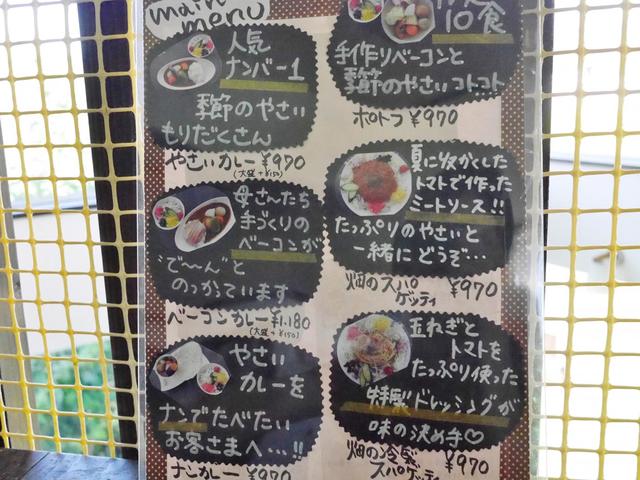 main
menu
人気
ナンバー1
季節のやさい
もりだくさん
やさいカレー ¥970
(大盛+¥150)
母さんたち
手づくりの
ベーコンが
"で〜ん"と
のっかています
ベーコンカレー ¥1,180
(大盛+¥150)
やさい
カレーを
ナンでたべたい
お客さまへ...!!
ナンカレー ¥970
10食
手作りベーコンと
季節のやさいコトコト...
ポトフ ¥970
夏に収かくした
トマトで作った
ミートソース!!
たっぷりのやさいと
一緒にどうぞ...
畑のスパ
ゲッティ ¥970
玉ねぎと
トマトを
たっぷり使った
特製ドレッシングが
味の決め手♡
畑の冷製
スパゲッティ ¥970